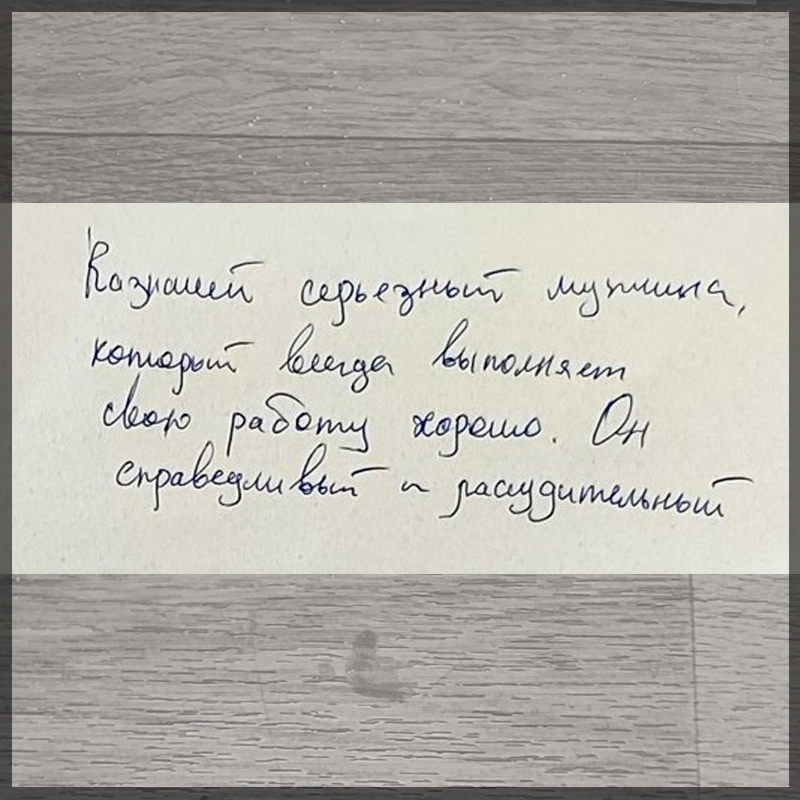 Казначей серьезный мужчина,
который всегда выполняет
свою работу хорошо. Он
справедливый и рассудительный